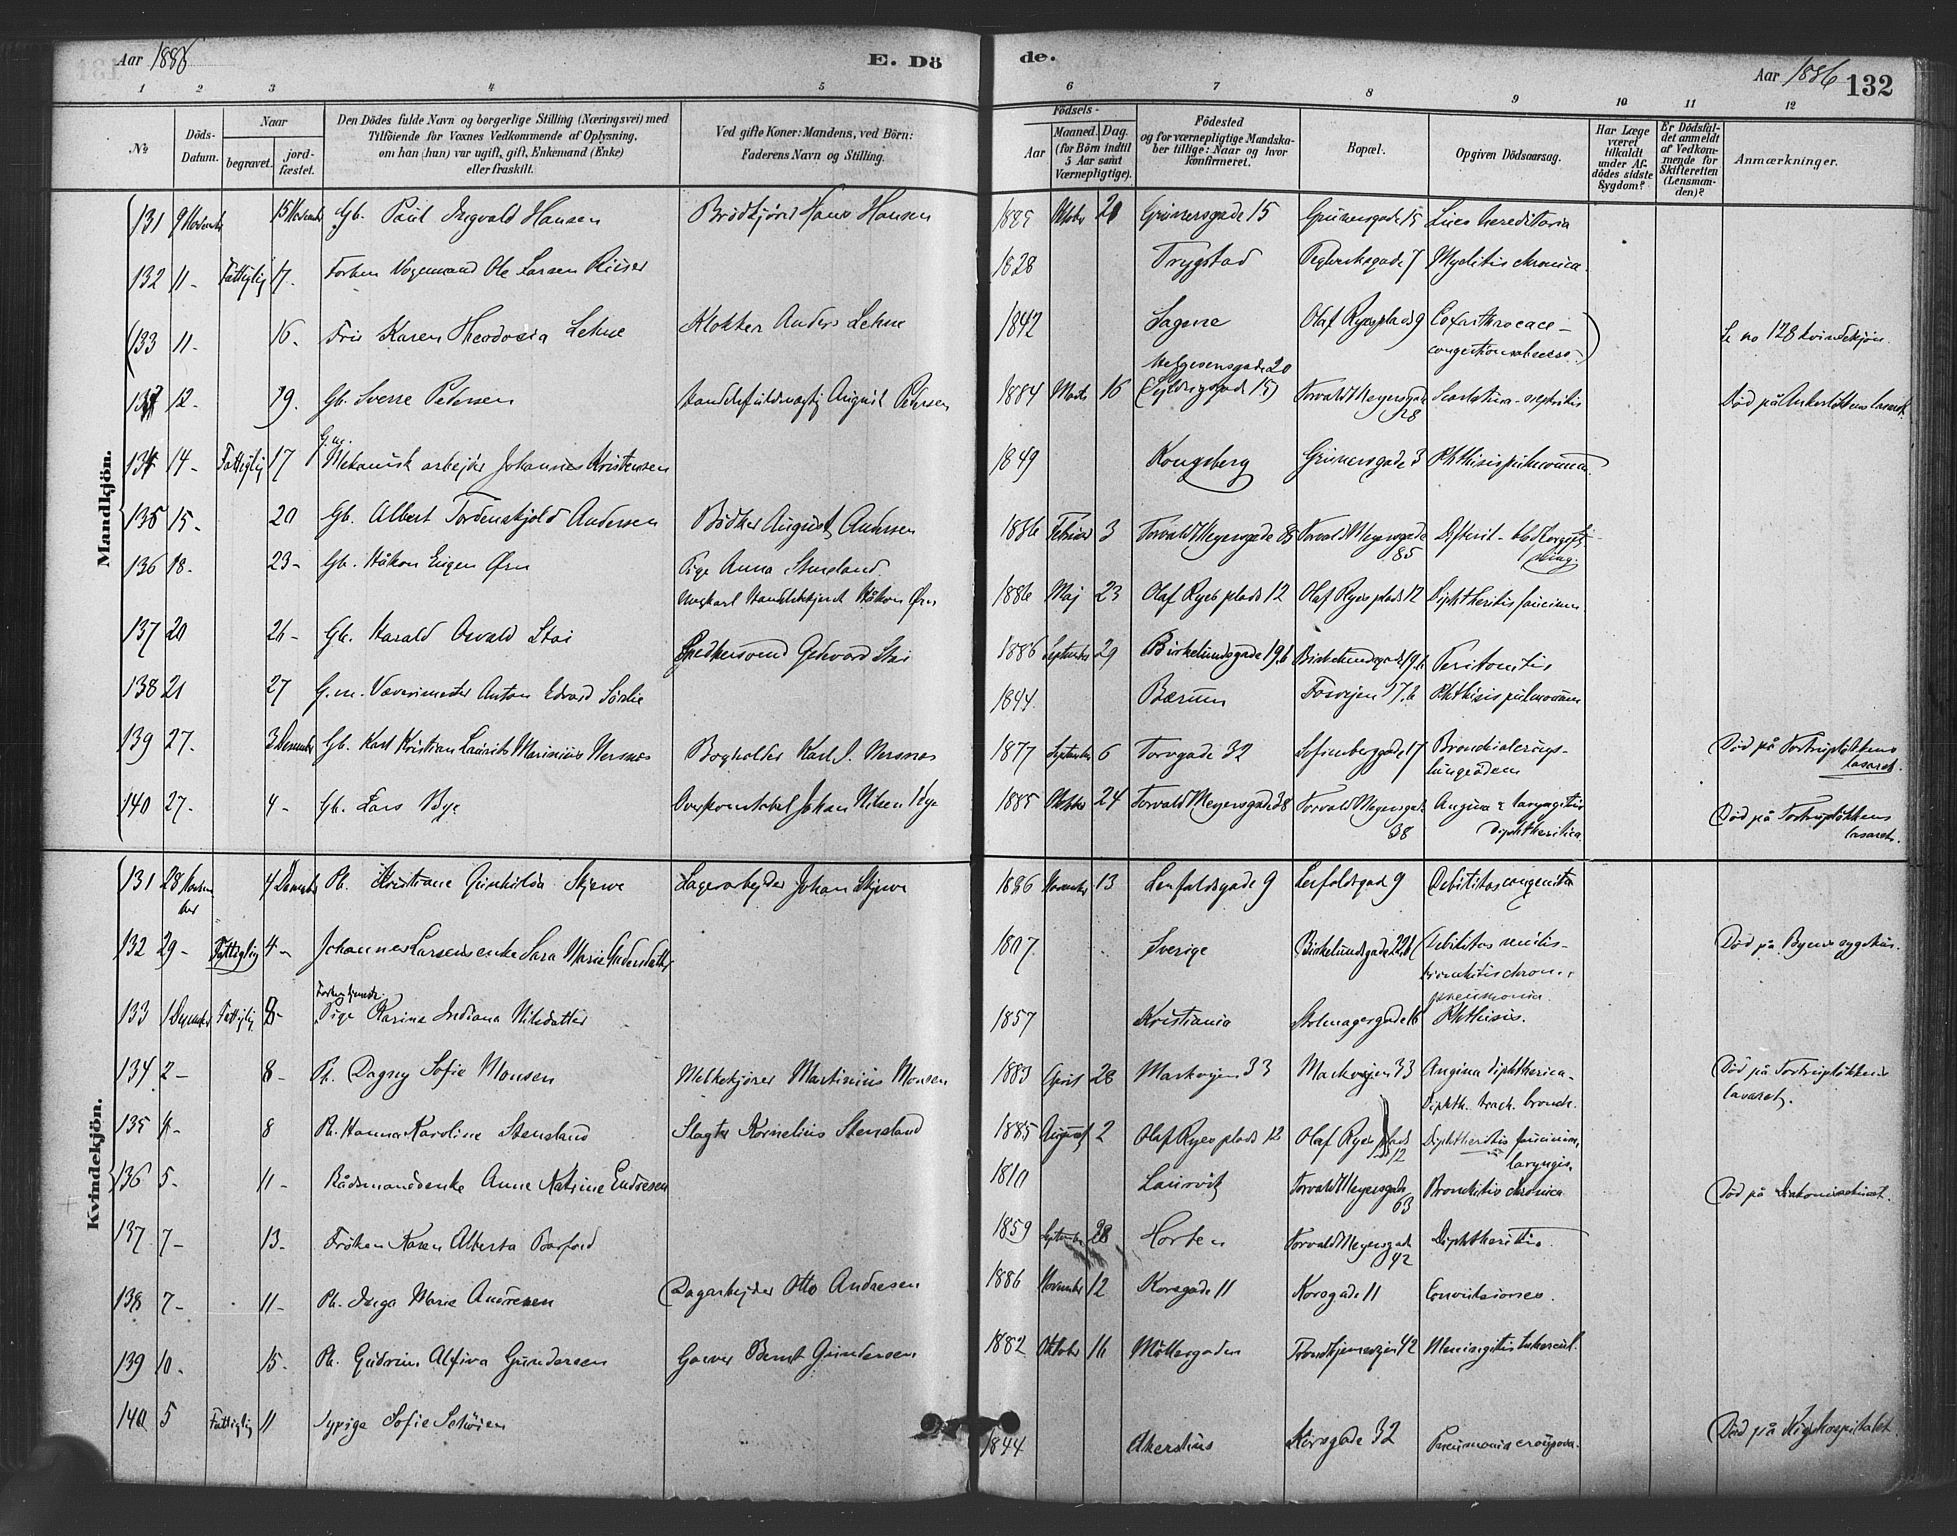 Aar 1886 E. Döde. Aar 1886 132
1 2 3 4 5 6 7 8 9 10 11 12
No. Döds-Datum. Naar begravet. jordfæstet. Den Dödes fulde Navn og borgerlige Stilling (Næringsvei) med Tilföiende for Voxnes Vedkommende af Oplysning, om han (hun) var ugift, gift, Enkemand (Enke) eller fraskilt. Ved gifte Koner: Mandens, ved Börn: Faderens Navn og Stilling. Födsels- Aar Maaned. Dag. (for Börn indtil 5 Aar samt Værnepligtige). Födested og for værnepligtige Mandskaber tillige: Naar og hvor konfirmeret. Bopæl. Opgiven Dödsaarsag. Har Læge været tilkaldt under Afdödes sidste Sygdom? Er Dödsfaldet anmeldt af Vedkommende for Skifteretten (Lensmanden)? Anmærkninger.
Mandkjön.
131 9 Novemb. 15 Novemb. Gb. Paul Ingvald Hansen Brödkjörer Hans Hansen 1885 Oktober 21 Grünersgade 15 Grünersgade 15 Lues hereditaria
132 11 - Fattiglig 17. Ole Larsen 1828 Trygstad 7 Myelitis chronica.
133 11 - 16 - Karen Theodosia Lehne Klokker Anders Lehne 1842 Sagene Olaf Ryes plads 9 Coxarthrocace - Se no 128 kvindekjön.
133 12 - 19. Gb. Sverre Petersen August Petersen 1884 Marts 16 Helgesensgade 20 Torvald Meyersgade 28 Scarlatina - nephritis Död på Ankerløkkens lasaret
134 14 - Fattiglig 17 G.m. Mekanisk arbejder Johannes Kristensen 1849 Kongsberg Grünersgade 3 Phthisis pulmonum
135 15 - 20 Gb. Albert Tordenskjold Andersen Bödker August Andersen 1886 Februar 3 Torvald Meyersgade 85 Torvald Meyersgade 85 Difterit - blodforgiftning.
136 18 - 23 - Gb. Håkon Eugen Ørn Pige Anna Stensland
Ungkarl Håkon Ørn 1886 Maj 23 Olaf Ryes plads 12 Olaf Ryes plads 12 Diphtheritis faucium
137 20 26 - Gb. Harald Osvald Stai Stai 1886 September 29 Birkelundsgade 19 b Birkelundsgade 19 b Peritonitis
138 21 27 G.m. Vævermester Anton Edvard Sörlie 1844 Bærum Fosvejen 17 b Phthisis pulmonum
139 27. 3 December Gb. Karl Kristian Laurits Marinius Mersnes Bogholder Karl J. Mersnes 1877 September 6 Torvgade 32 Sofienberggade 17 Död på lasaret.
140 27 - 4 - Gb. Lars Bye Overkonstabel Johan Nilsen Bye 1885 Oktober 24 Torvald Meyersgade 38 Torvald Meyersgade 38 Angina & laryngitis diphtheritica Död på lasaret.
Kvindekjön.
131 28 November 4 December Pb. Kristiane Gunhilda Skjerve Lagerarbejder Johan Skjerve 1886 November 13 9 9 Debilitas congenita
132 29 - Fattiglig 4 - Johannes Larsens enke Sara Marie Andersdatter 1807 Sverige Birkelundsgade 22 b Debilitas senilis - bronkitis chron., pneumonia. Död på Byens sygehus.
133 1 December Fattiglig 8 - Pige Karine Indiana Nilsdatter 1857 Kristiania 16 Phthisis.
134 2 - 8 - Pb. Dagny Sofie Monsen Melkekjörer Martinius Monsen 1883 April 28 Markvejen 33 Markvejen 33 Angina diphtherica - Diphth. trach. bronch. Död på lasaret.
135 4 - 8 Pb. Hanna Karoline Stensland Slagter Kornelius Stensland 1885 August 2 Olaf Ryes plads 12 Olaf Ryes plads 12 Diphtheritis faucium, laryngis.
136 5 - 11 - Rådsmandsenke Anne Katrine Endresen 1810 Laurvik Torvald Meyersgade 63 Bronkitis chronica Död på Diakonissehuset.
137 7 - 13 - Fröken Karen Alberta Barfod 1859 September 28 Horten Torvald Meyersgade 42 Diphtheritis
138 7 - 11 - Pb. Inga Marie Andresen Dagarbejder Otto Andresen 1886 November 12 Korsgade 11 Korsgade 11 Convulsiones.
139 10 - 15 - Pb. Gudrun Alfiva Gundersen Garver Bernt Gundersen 1882 Oktober 16 Möllergaden Trondhjemsvejen 42 Meningitis tubercul.
140 5 Fattiglig 11 Sypige Sofie Schöien 1844 Akershus Korsgade 32 Pneumonia crouposa. Död på Rigshospitalet.